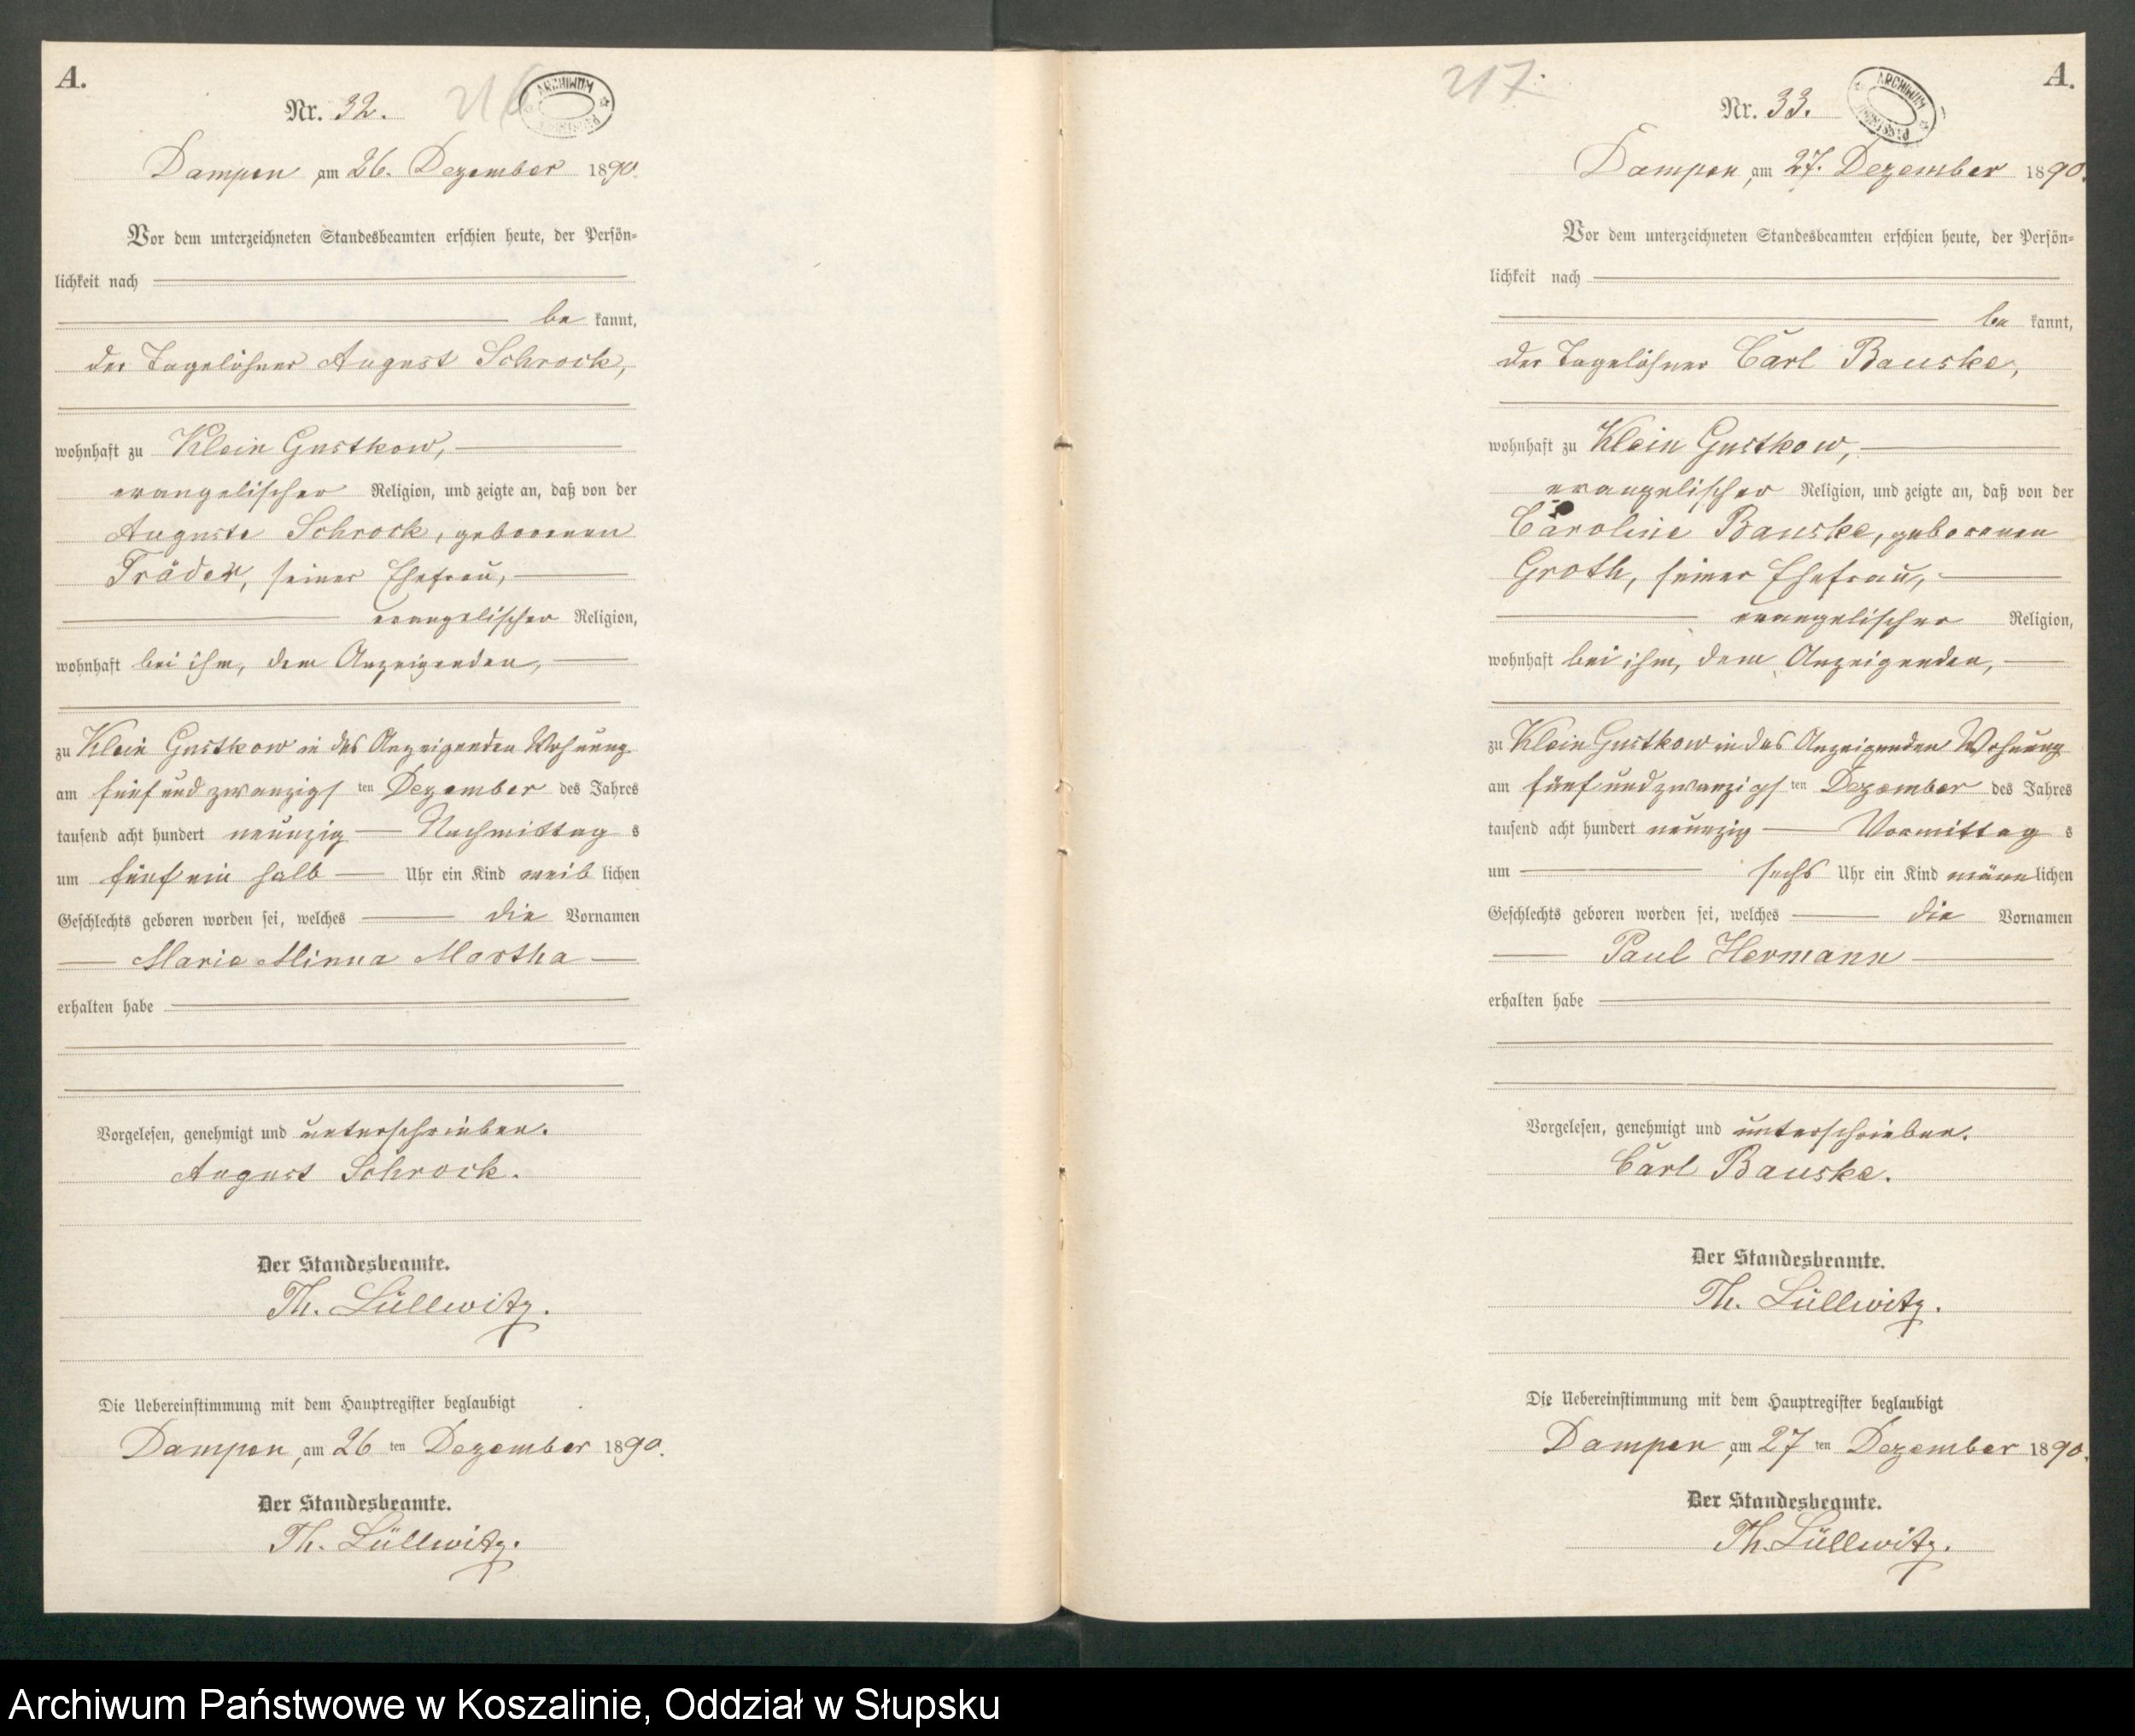 A.
Nr. 32.
216
ARCHIWUM
Dampen, am 26. Dezember 1890.
Vor dem unterzeichneten Standesbeamten erschien heute, der Persön-
lichkeit nach
be kannt,
der Tagelöhner August Schrock,
wohnhaft zu Klein Gustkow,
evangelischer Religion, und zeigte an, daß von der
Auguste Schrock, geborenen
Träder, seiner Ehefrau,
evangelischer Religion,
wohnhaft bei ihm, dem Anzeigenden,
zu Klein Gustkow in des Anzeigenden Wohnung
am fünfundzwanzigs ten Dezember des Jahres
tausend acht hundert neunzig Nachmittag s
um fünf ein halb Uhr ein Kind weib lichen
Geschlechts geboren worden sei, welches die Vornamen
Marie Minna Martha
erhalten habe
Vorgelesen, genehmigt und unterschrieben.
August Schrock.
Der Standesbeamte.
Th. Lüllwitz.
Die Uebereinstimmung mit dem Hauptregister beglaubigt
Dampen, am 26 ten Dezember 1890.
Der Standesbeamte.
Th. Lüllwitz.
A.
217.
Nr. 33.
ARCHIWUM
Dampen, am 27. Dezember 1890.
Vor dem unterzeichneten Standesbeamten erschien heute, der Persön-
lichkeit nach
be kannt,
der Tagelöhner Carl Bauske,
wohnhaft zu Klein Gustkow,
evangelischer Religion, und zeigte an, daß von der
Caroline Bauske, geborenen
Groth, seiner Ehefrau,
evangelischer Religion,
wohnhaft bei ihm, dem Anzeigenden,
zu Klein Gustkow in des Anzeigenden Wohnung
am fünfundzwanzigs ten Dezember des Jahres
tausend acht hundert neunzig Vormittag s
um sechs Uhr ein Kind männ lichen
Geschlechts geboren worden sei, welches die Vornamen
Paul Hermann
erhalten habe
Vorgelesen, genehmigt und unterschrieben.
Carl Bauske.
Der Standesbeamte.
Th. Lüllwitz.
Die Uebereinstimmung mit dem Hauptregister beglaubigt
Dampen, am 27 ten Dezember 1890.
Der Standesbeamte.
Th. Lüllwitz.
Archiwum Państwowe w Koszalinie, Oddział w Słupsku